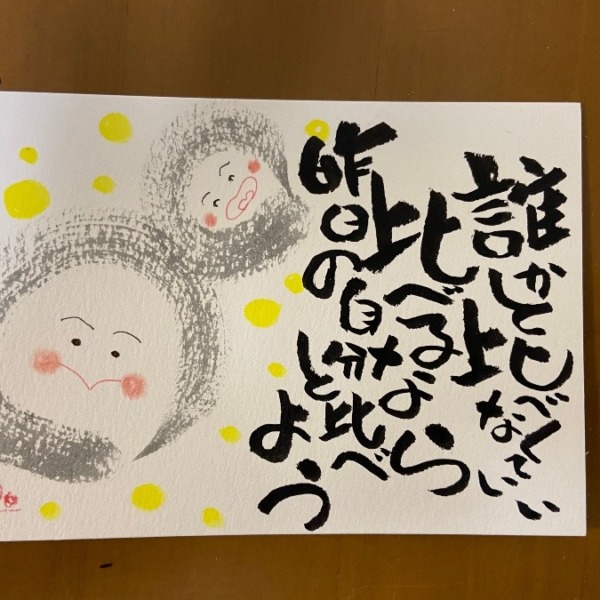 誰かと比べなくていい
比べるなら
昨日の自分と比べよう